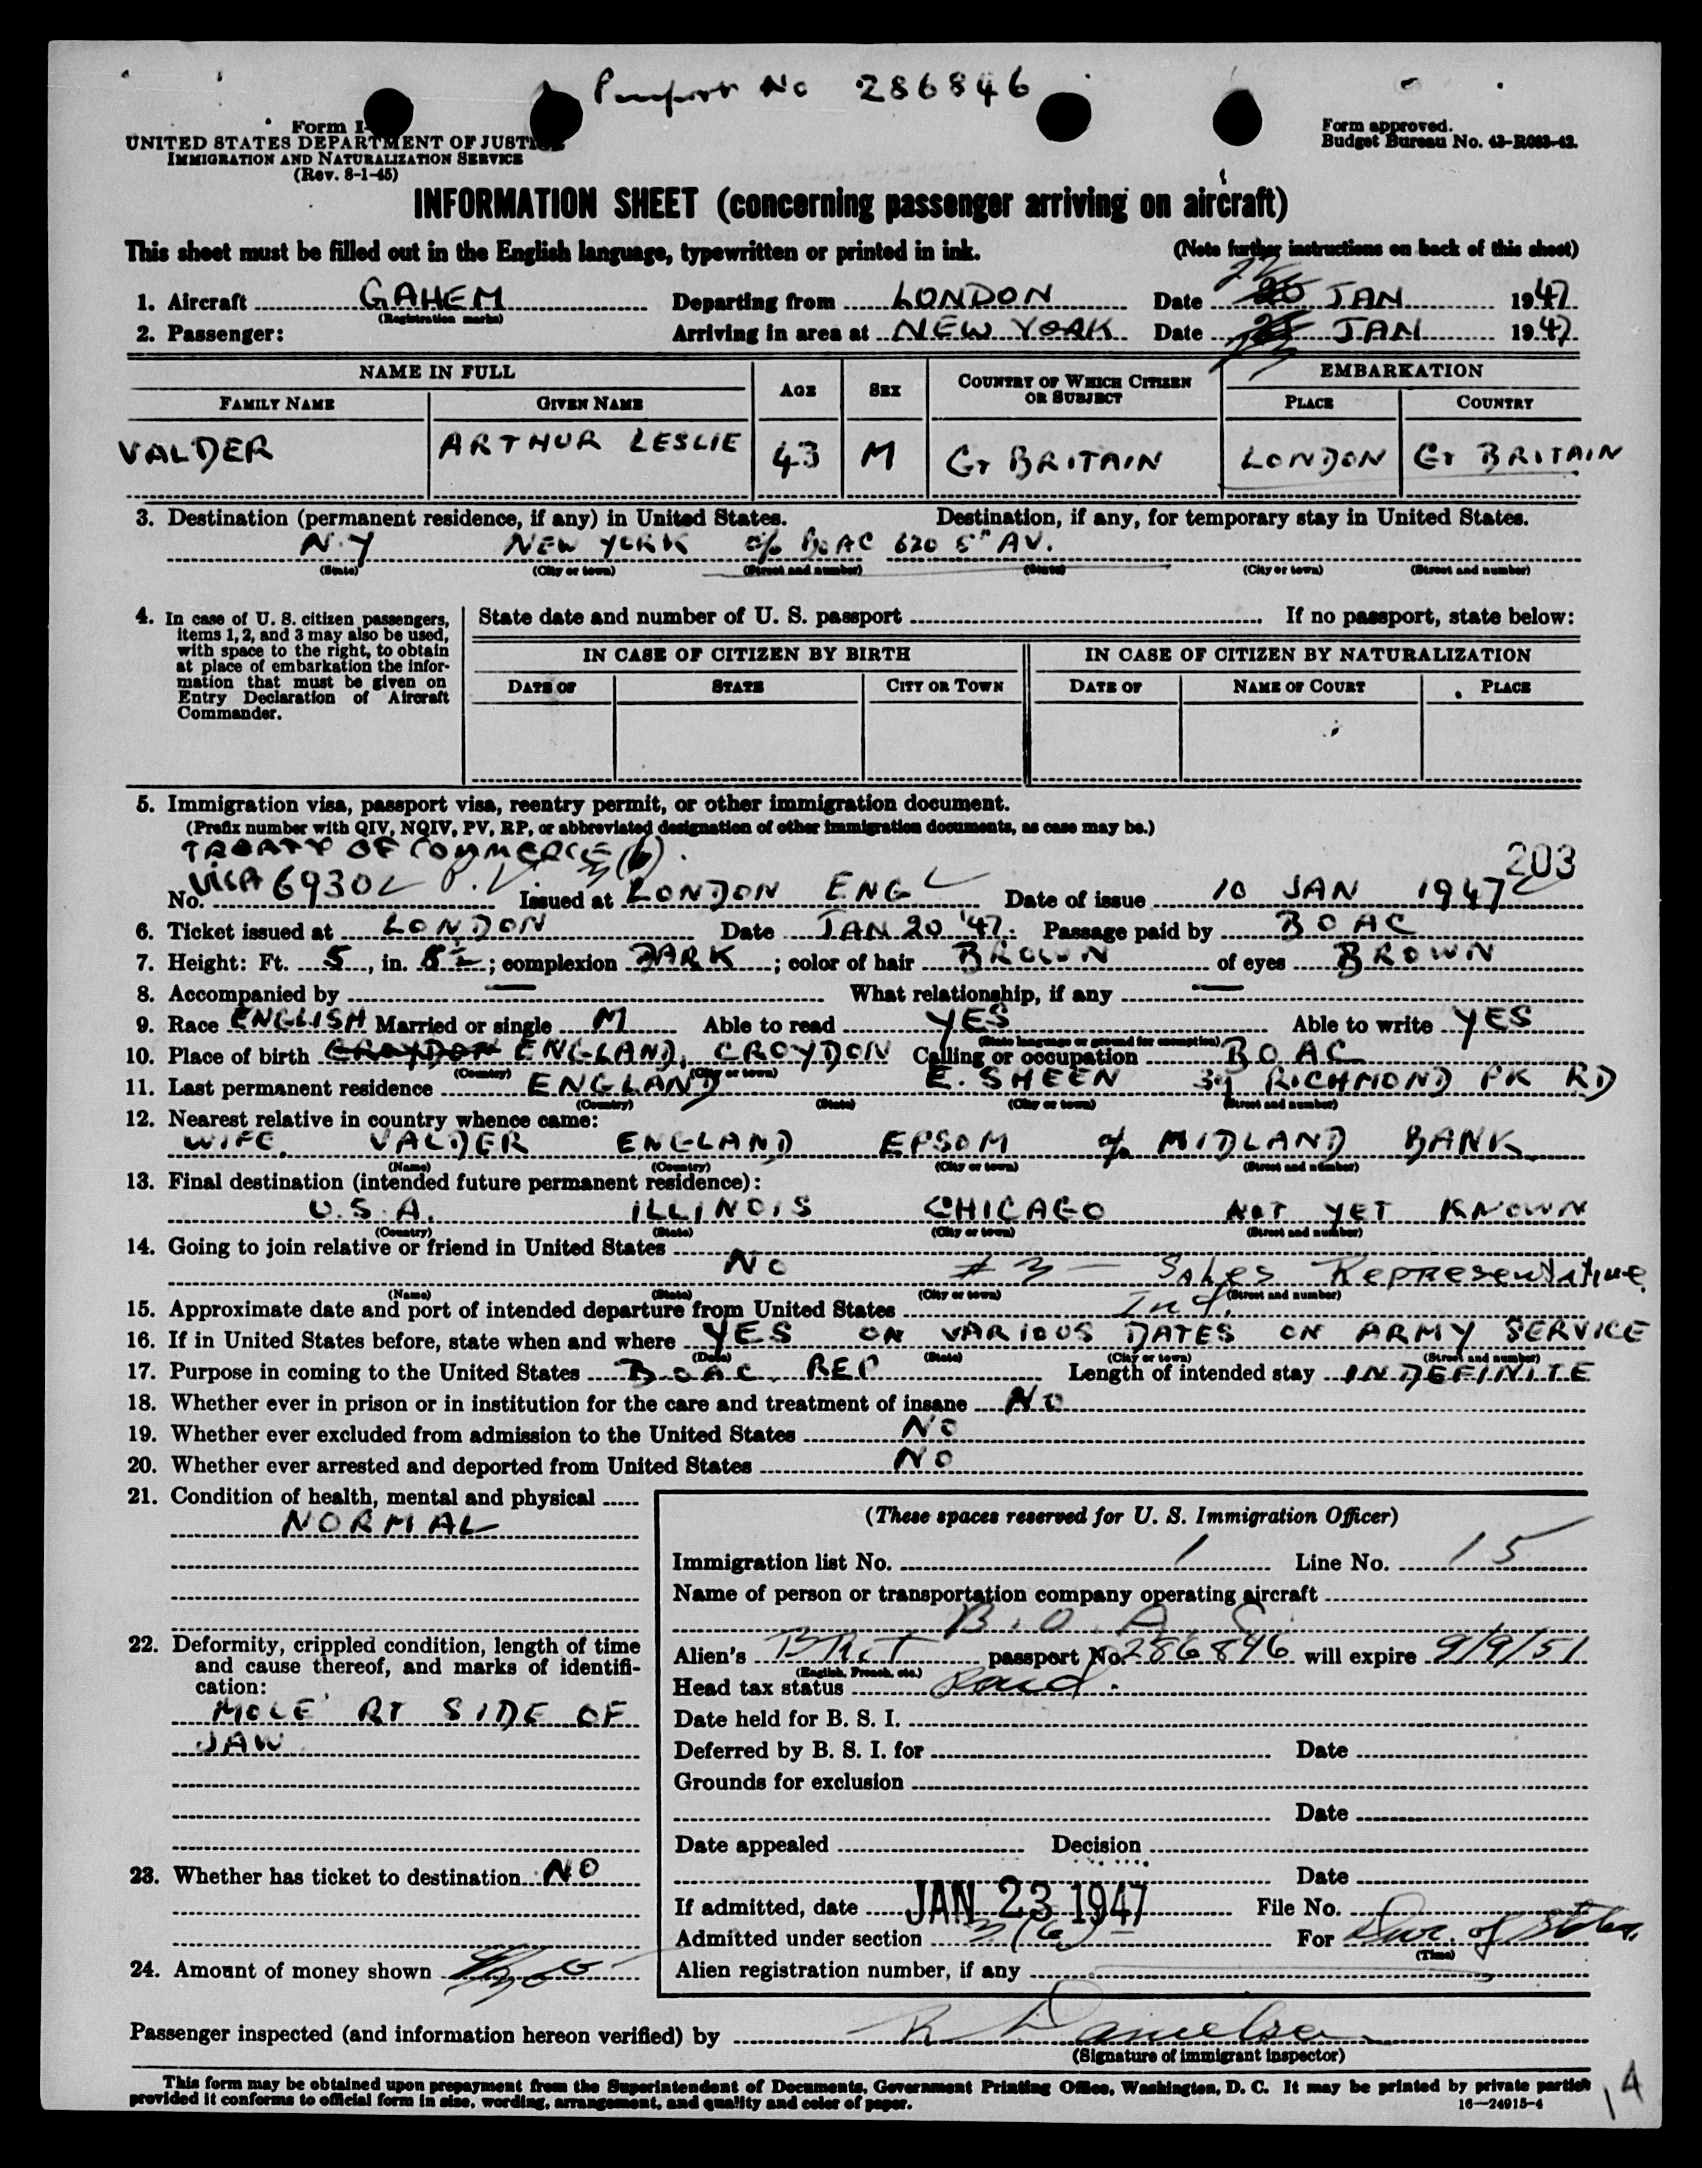 Passport No 286846
Form I-
UNITED STATES DEPARTMENT OF JUSTICE
IMMIGRATION AND NATURALIZATION SERVICE
(Rev. 8-1-45)
Form approved.
Budget Bureau No. 43-R063-42.
INFORMATION SHEET (concerning passenger arriving on aircraft)
This sheet must be filled out in the English language, typewritten or printed in ink. (Note further instructions on back of this sheet)
1. Aircraft GAHEM Departing from LONDON Date 22 JAN 1947
(Registration marks)
2. Passenger: Arriving in area at NEW YORK Date 23 JAN 1947
NAME IN FULL AGE SEX COUNTRY OF WHICH CITIZEN OR SUBJECT EMBARKATION
FAMILY NAME GIVEN NAME PLACE COUNTRY
VALDER ARTHUR LESLIE 43 M GT BRITAIN LONDON GT BRITAIN
3. Destination (permanent residence, if any) in United States. Destination, if any, for temporary stay in United States.
N.Y NEW YORK c/o BOAC 620 5TH AV.
(State) (City or town) (Street and number) (State) (City or town) (Street and number)
4. In case of U. S. citizen passengers, items 1, 2, and 3 may also be used, with space to the right, to obtain at place of embarkation the information that must be given on Entry Declaration of Aircraft Commander.
State date and number of U. S. passport If no passport, state below:
IN CASE OF CITIZEN BY BIRTH IN CASE OF CITIZEN BY NATURALIZATION
DATE OF STATE CITY OR TOWN DATE OF NAME OF COURT PLACE
5. Immigration visa, passport visa, reentry permit, or other immigration document.
(Prefix number with QIV, NQIV, PV, RP, or abbreviated designation of other immigration documents, as case may be.)
TREATY OF COMMERCE 3(6).
203
No. VISA 69302 P.V. Issued at LONDON ENG Date of issue 10 JAN 1947
6. Ticket issued at LONDON Date JAN 20 '47. Passage paid by BOAC
7. Height: Ft. 5, in. 8½; complexion DARK; color of hair BROWN of eyes BROWN
8. Accompanied by — What relationship, if any —
9. Race ENGLISH Married or single M Able to read YES Able to write YES
(State language or ground for exemption)
10. Place of birth CROYDON ENGLAND, CROYDON Calling or occupation BOAC
(Country) (City or town)
11. Last permanent residence ENGLAND E. SHEEN 39 RICHMOND PK RD
(Country) (State) (City or town) (Street and number)
12. Nearest relative in country whence came:
WIFE. VALDER ENGLAND EPSOM c/o MIDLAND BANK
(Name) (Country) (City or town) (Street and number)
13. Final destination (intended future permanent residence):
U.S.A. ILLINOIS CHICAGO NOT YET KNOWN
(Country) (State) (City or town) (Street and number)
14. Going to join relative or friend in United States
NO #3 — Sales Representative
(Name) (State) (City or town) (Street and number)
15. Approximate date and port of intended departure from United States Ind.
16. If in United States before, state when and where YES ON VARIOUS DATES ON ARMY SERVICE
(Date) (State) (City or town) (Street and number)
17. Purpose in coming to the United States B.O.A.C. REP Length of intended stay INDEFINITE
18. Whether ever in prison or in institution for the care and treatment of insane NO
19. Whether ever excluded from admission to the United States NO
20. Whether ever arrested and deported from United States NO
21. Condition of health, mental and physical
NORMAL
22. Deformity, crippled condition, length of time and cause thereof, and marks of identification:
MOLE RT SIDE OF
JAW
23. Whether has ticket to destination NO
24. Amount of money shown
(These spaces reserved for U. S. Immigration Officer)
Immigration list No. 1 Line No. 15
Name of person or transportation company operating aircraft
B.O.A.C.
Alien's BRIT passport No. 286846 will expire 9/9/51
(English, French, etc.)
Head tax status Paid.
Date held for B. S. I.
Deferred by B. S. I. for Date
Grounds for exclusion
Date
Date appealed Decision
Date
If admitted, date JAN 23 1947 File No.
Admitted under section 3(6) For Dur. of Status
(Time)
Alien registration number, if any
Passenger inspected (and information hereon verified) by R Danielsen
(Signature of immigrant inspector)
This form may be obtained upon prepayment from the Superintendent of Documents, Government Printing Office, Washington, D. C. It may be printed by private parties
provided it conforms to official form in size, wording, arrangement, and quality and color of paper. 16—24915-4
14